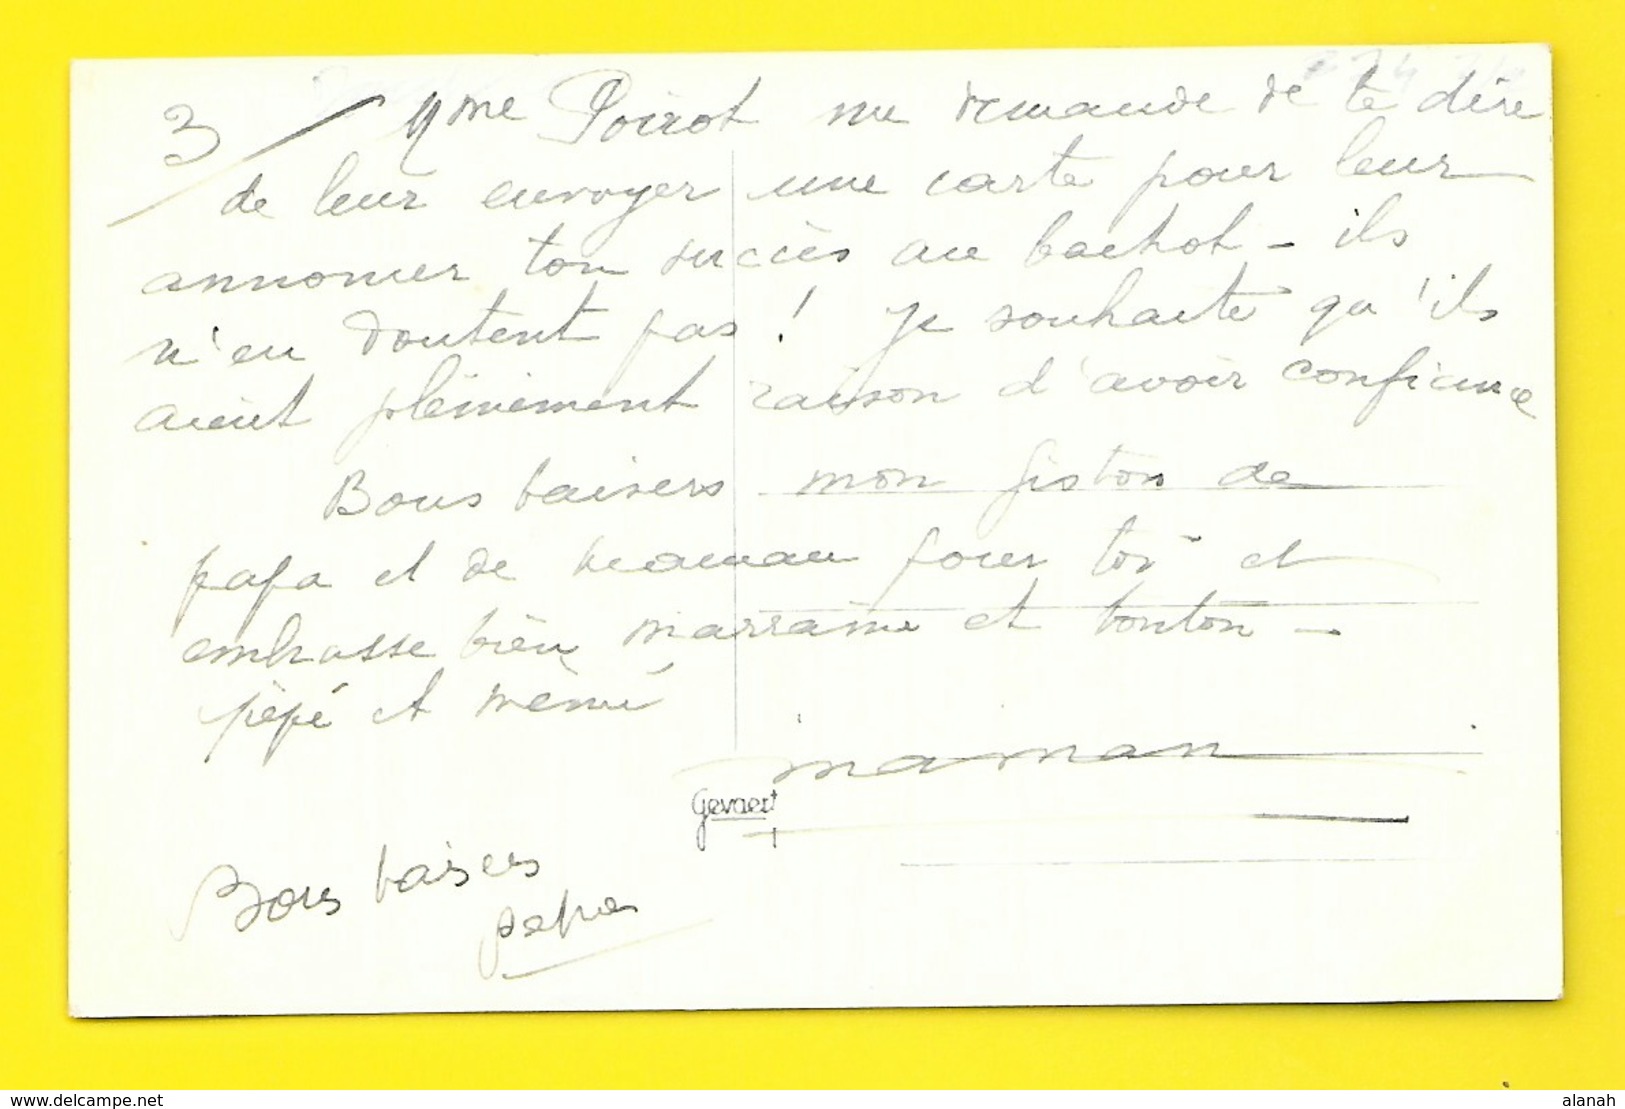 3/ Mme Poirot me demande de te dire
de leur envoyer une carte pour leur
annoncer ton succès au bachot - ils
n'en doutent pas ! Je souhaite qu'ils
aient pleinement raison d'avoir confiance
Bons baisers mon fiston de
papa et de maman pour toi et
embrasse bien marraine et tonton -
pépé et mémé
maman
Gevaert
Bons baisers
papa
www.delcampe.net
alanah